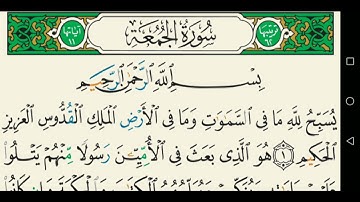 ترتيبها ٦٢ سُورَةُ الجُمُعَةِ آياتها ١١
بِسْمِ ٱللَّهِ ٱلرَّحْمَٰنِ ٱلرَّحِيمِ
يُسَبِّحُ لِلَّهِ مَا فِي ٱلسَّمَٰوَٰتِ وَمَا فِي ٱلْأَرْضِ ٱلْمَلِكِ ٱلْقُدُّوسِ ٱلْعَزِيزِ
ٱلْحَكِيمِ ١ هُوَ ٱلَّذِي بَعَثَ فِي ٱلْأُمِّيِّـۧنَ رَسُولًا مِّنْهُمْ يَتْلُوا۟